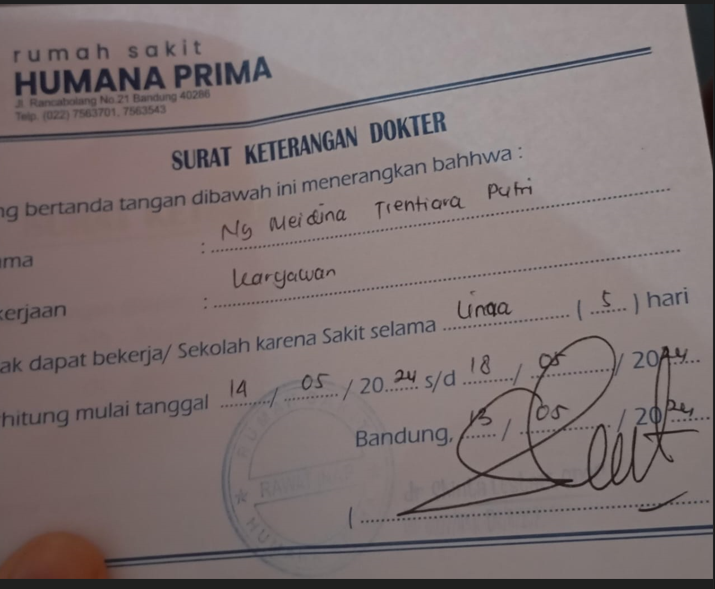 rumah sakit
HUMANA PRIMA
Jl. Rancabolang No.21 Bandung 40286
Telp. (022) 7563701, 7563543
SURAT KETERANGAN DOKTER
ng bertanda tangan dibawah ini menerangkan bahhwa :
ama : Ny Meidina Trentiara Putri
kerjaan : Karyawan
ak dapat bekerja/ Sekolah karena Sakit selama Linaa ( 5 ) hari
hitung mulai tanggal 14 / 05 / 20 24 s/d 18 / 05 / 20 24
Bandung, 13 / 05 / 20 24
(